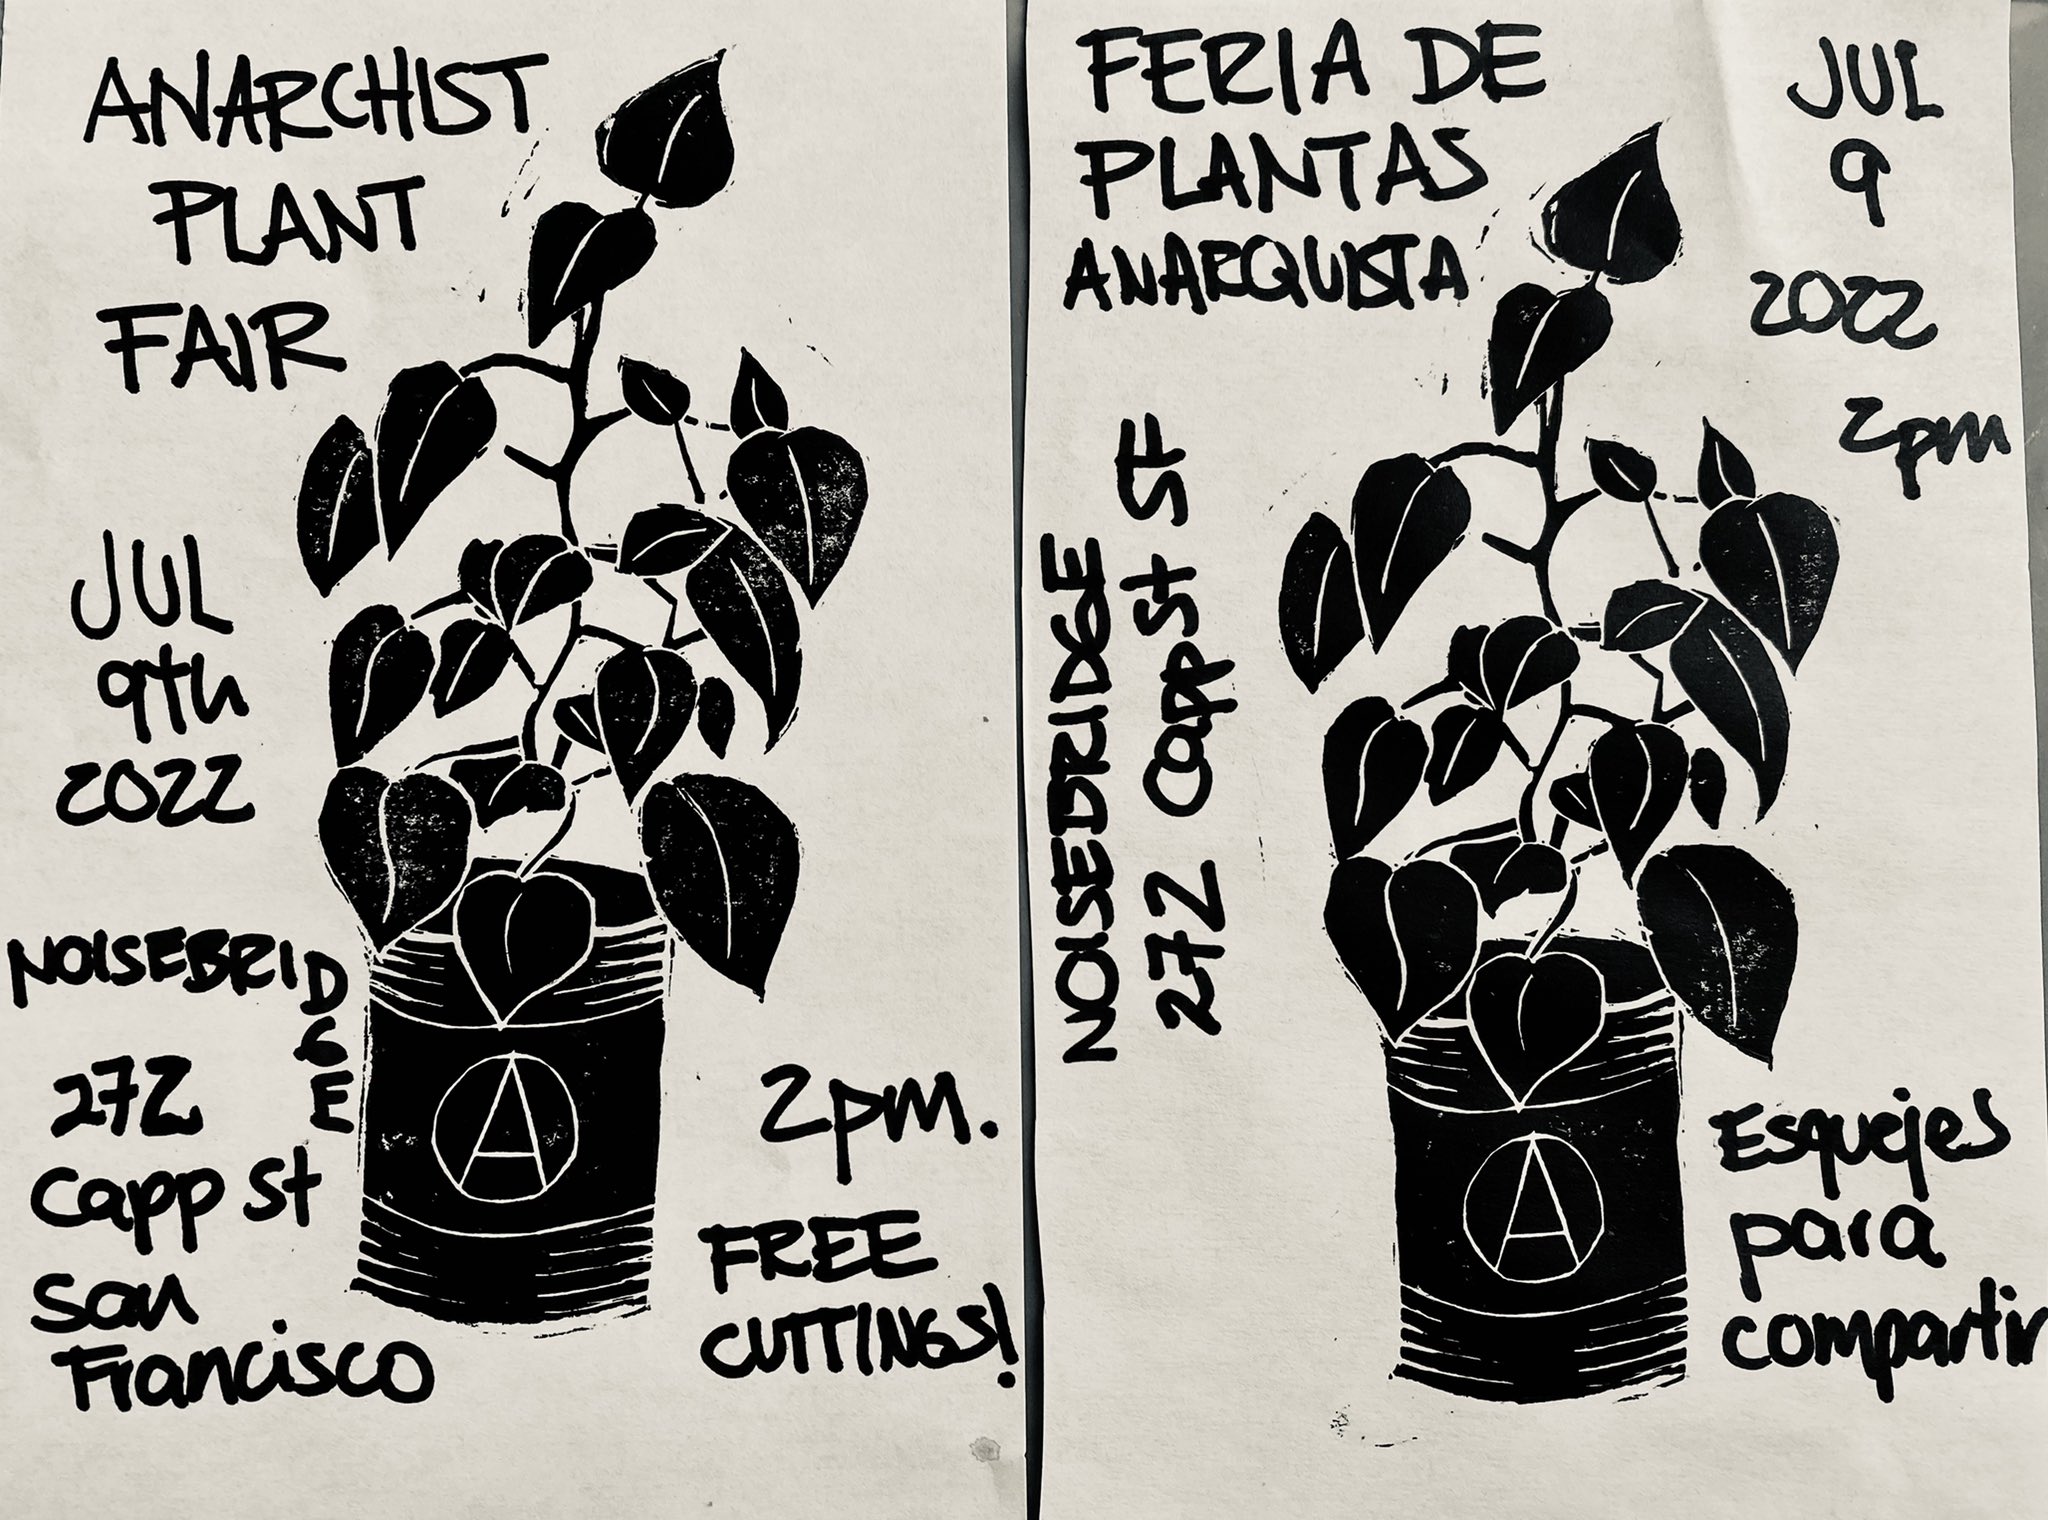 ANARCHIST
PLANT
FAIR
JUL
9th
2022
NOISEBRIDGE
272
Capp st
San
Francisco
A
2pm.
FREE
CUTTINGS!
FERIA DE
PLANTAS
ANARQUISTA
JUL
9
2022
2pm
NOISEBRIDGE
272 Capp st SF
A
Esquejes
para
compartir